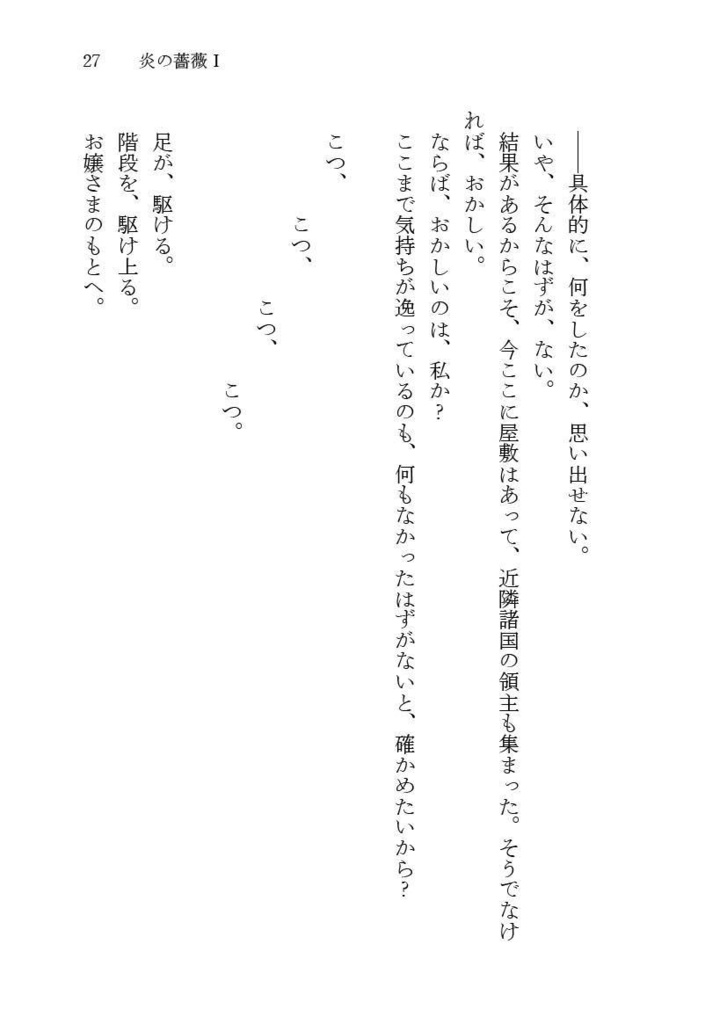 27 炎の薔薇Ⅰ
――具体的に、何をしたのか、思い出せない。
いや、そんなはずが、ない。
結果があるからこそ、今ここに屋敷はあって、近隣諸国の領主も集まった。そうでなけ
れば、おかしい。
ならば、おかしいのは、私か?
ここまで気持ちが逸っているのも、何もなかったはずがないと、確かめたいから?
こつ、
こつ、
こつ、
こつ。
足が、駆ける。
階段を、駆け上る。
お嬢さまのもとへ。